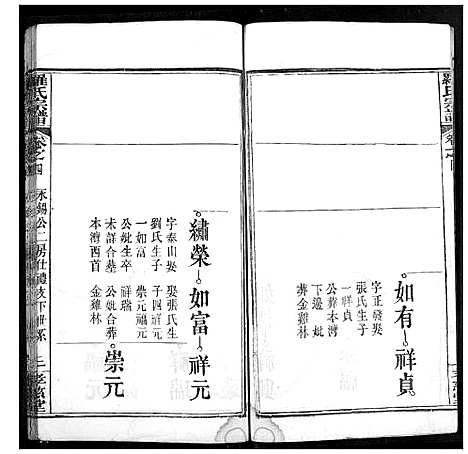 羅氏宗譜
卷之四
如有
祥貞
字正發娶
張氏生子
一祥貞
公葬本灣
下邊 妣
葬金雞林
羅氏宗譜
卷之四
永錫公二房仕禮支下世系
繡榮
如富
祥元
字泰山娶
劉氏生子
一如富
公妣生卒
未詳合葬
本灣酉首
娶張氏生
子四祥元
崇元福元
祥瑞
公妣合葬
金雞林
崇元